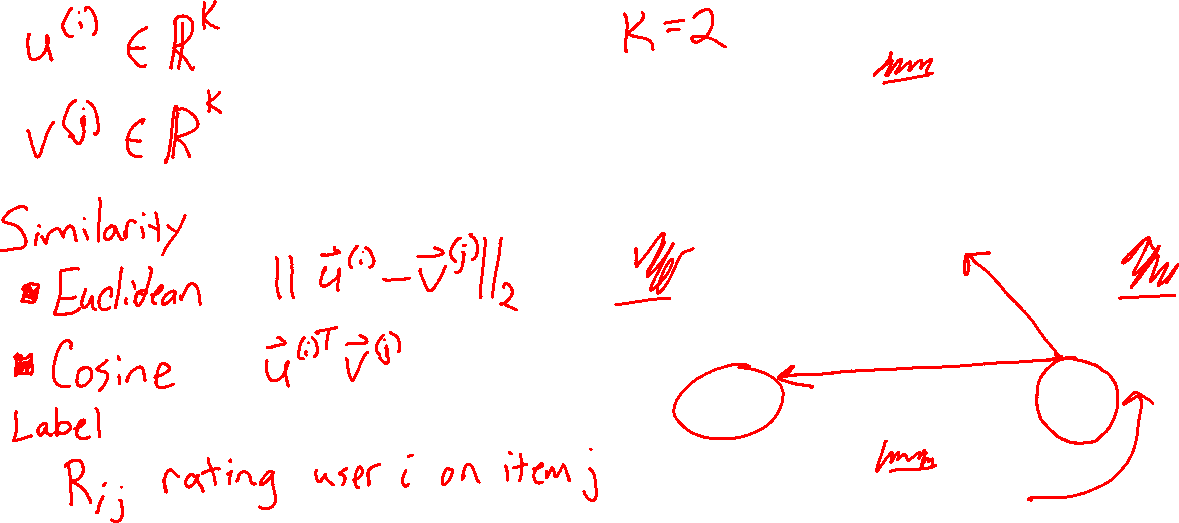 u^(i) ∈ ℝ^K
K=2
v^(j) ∈ ℝ^K
Similarity
▪ Euclidean || u⃗^(i) − v⃗^(j) ||_2
▪ Cosine u⃗^(i)T v⃗^(j)
Label
R_ij rating user i on item j